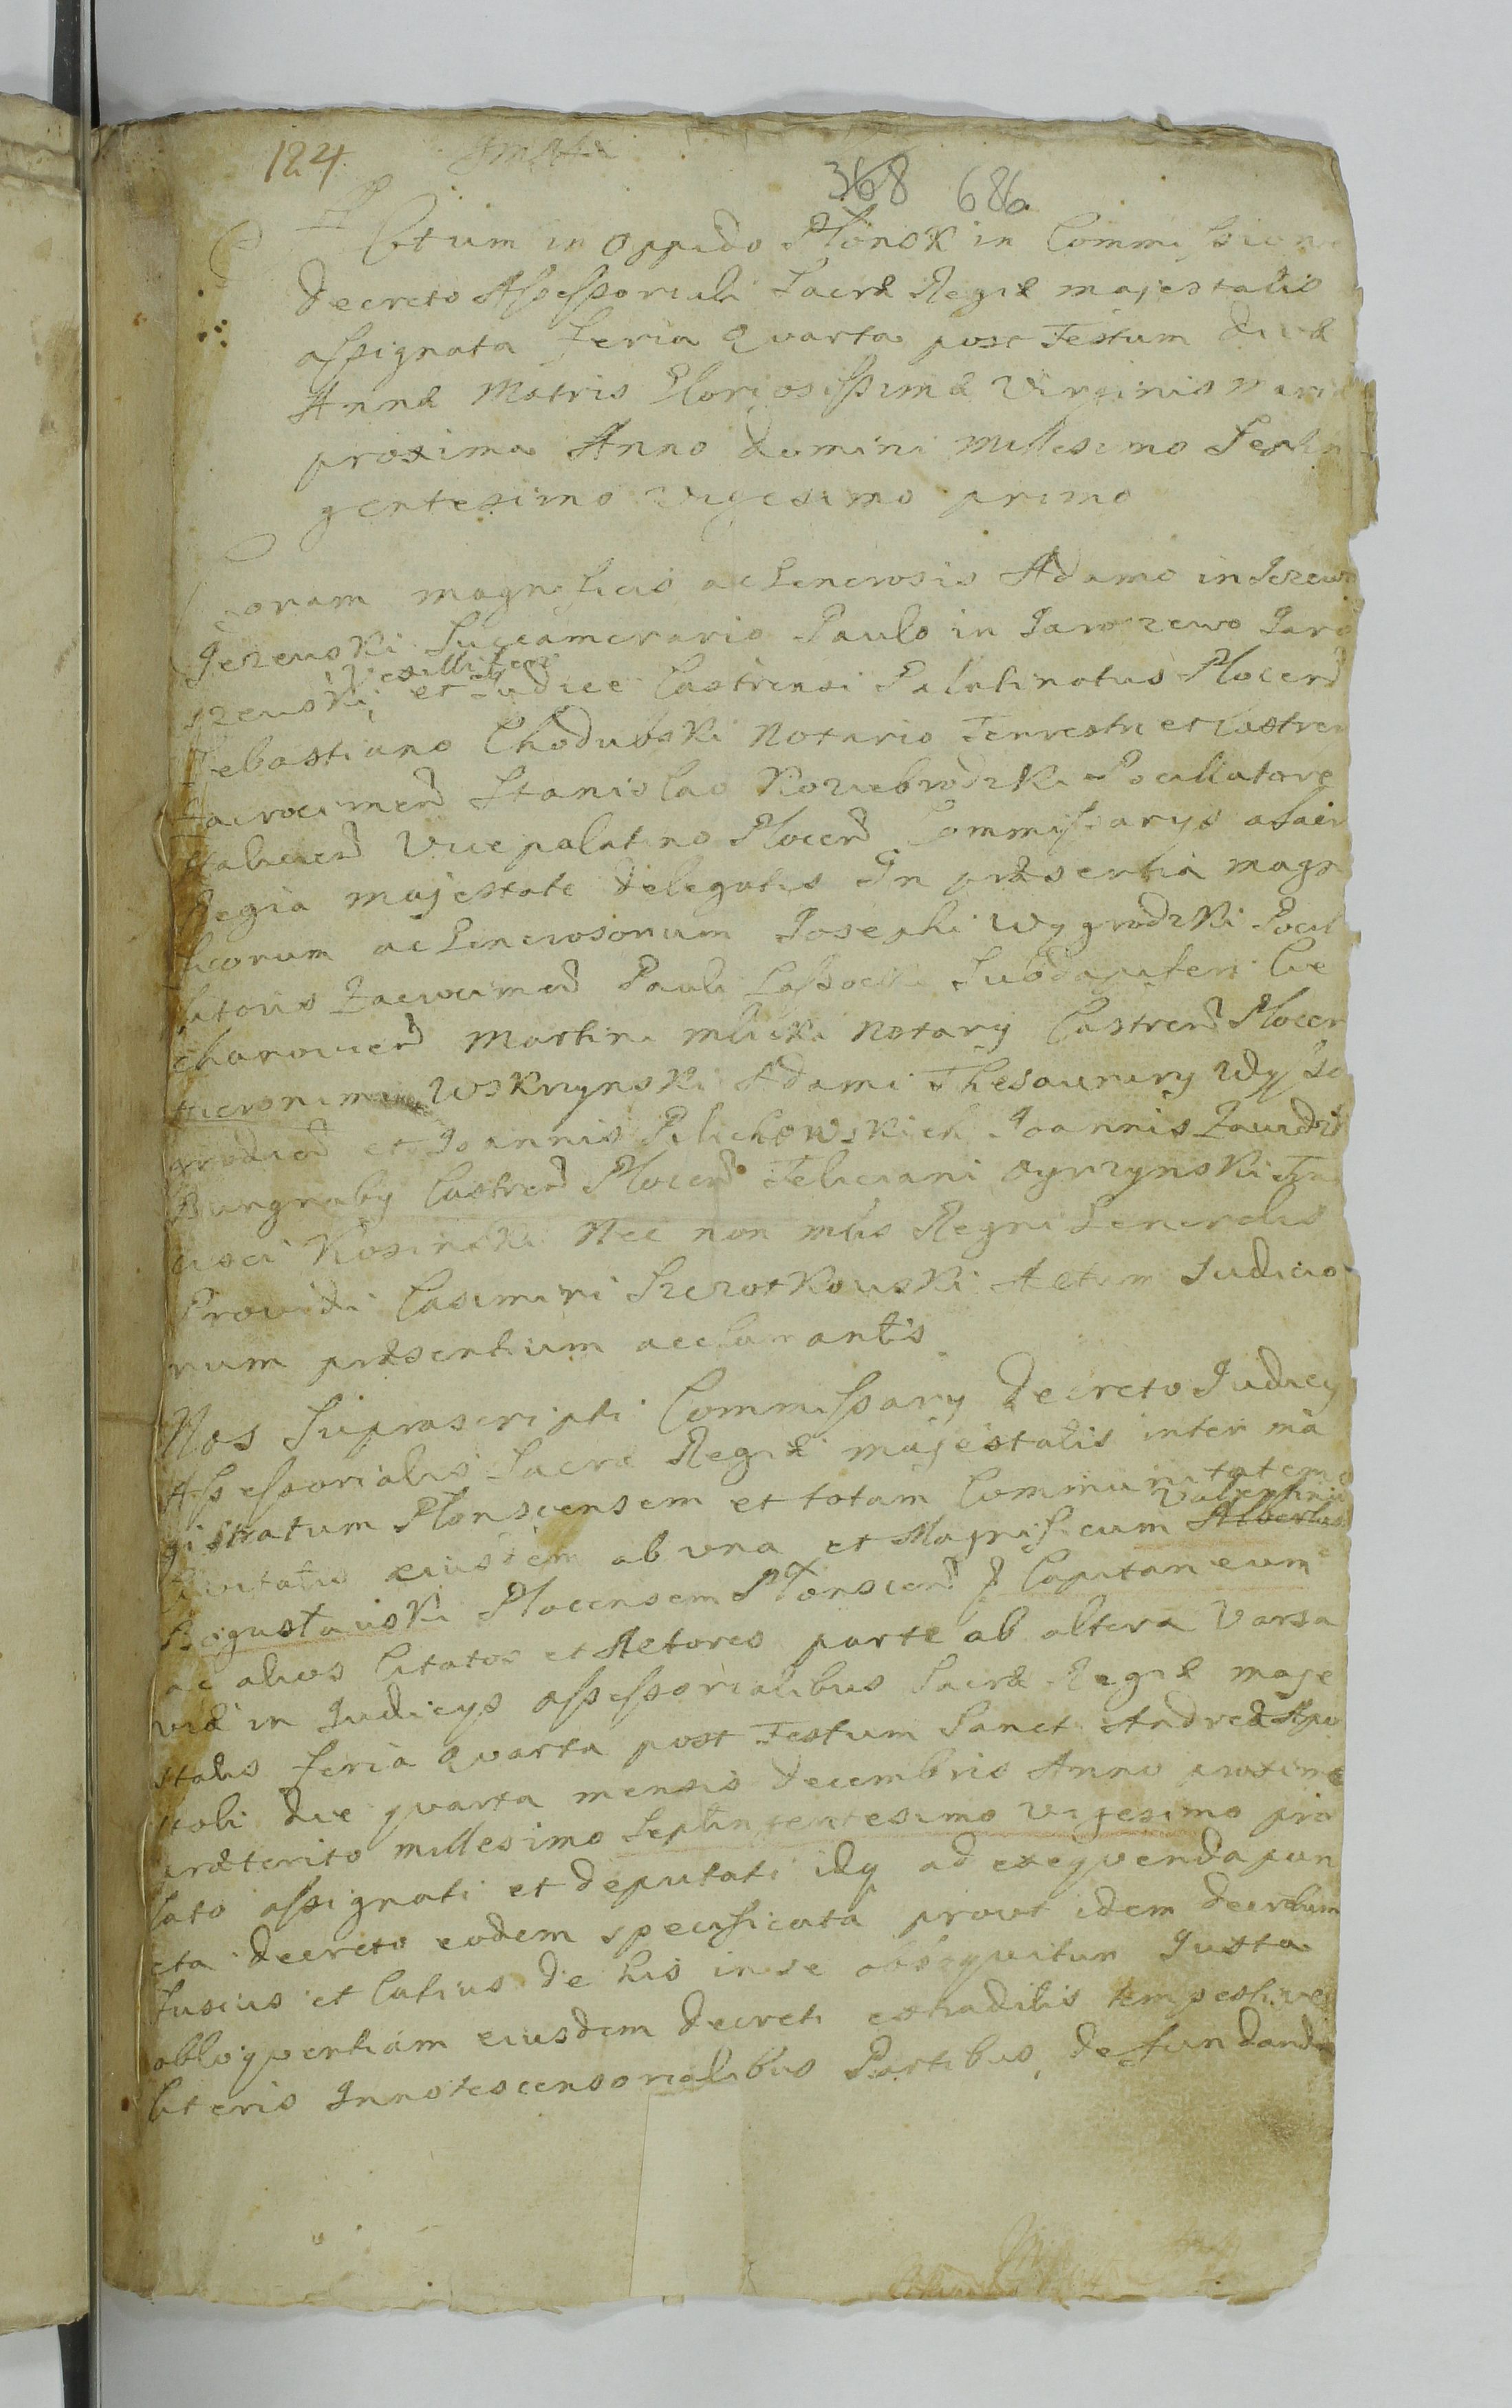 124.
368 686
Actum in Oppido Płonsk in Commissione
Decreto Assessoriali Sacræ Regiæ majestatis
assignata feria Quarta post Festum Divæ
Annæ Matris Gloriosissimæ Virginis Mariæ
proxima Anno Domini Millesimo Septin
gentesimo vigesimo primo
Coram magnificis ac Generosis Adamo in Jezewo
Jezewski Succamerario Paulo in Jaroszewo Jaro
szewski Vexillifero et Judice Castrensi Palatinatus Plocen
Sebastiano Chodubski Notario Terrestri et Castren
Zacrocimen Stanislao Koziebrodzki Pocillatore
Halicien Vicepalatino Plocen Commissarys a Sacr
Regia majestate delegatis In præsentia magni
ficorum ac Generosonum Josephi Wygrodzki Pocil
latoris Zacrocimen Pauli Lassocki Subdapiferi Cie
chanovien Martini Mlicki Notarij Castren Plocen
Hieronimi Wskrzynski Adami Thesaurary Wysso
grodien et Joannis Pilichowskich Joannis Zawidzki
Burgraby Castren Plocen Feliciani Ogrzynski Fran
cisci Kosinski Nec non mlis Regni Generalis
Providi Casimiri Szczotkowski Actum Judicio
rum præsentium acclamantis
Nos Suprascripti Commissary Decreto Judicij
Assessorialis Sacræ Regiæ majestatis inter ma
gistratum Plonscensem et totam Communitatem
Civitatis eiusdem ab una et Magnificum Albertum Valentinum
Boigustawski Plocensem Płonscen Capitaneum
ac alios Citatos et Actores parte ab altera Varsa
viæ in Judicijs assessorialibus Sacræ Regiæ maje
statis feria Quarta post Festum Sancti Andreæ Apo
stoli die quarta mensis Decembris Anno proxime
præterito millesimo Septingentesimo Vigesimo pro
lato assignati et deputati idq ad exeqvenda pun
cta decreto eodem specificata prout idem decretum
fusius et latius de his in se obloquitur Juxta
obloqventiam eiusdem decreti extraditis tempestive
literis Innotescensorialibus Partibus, de fundanda